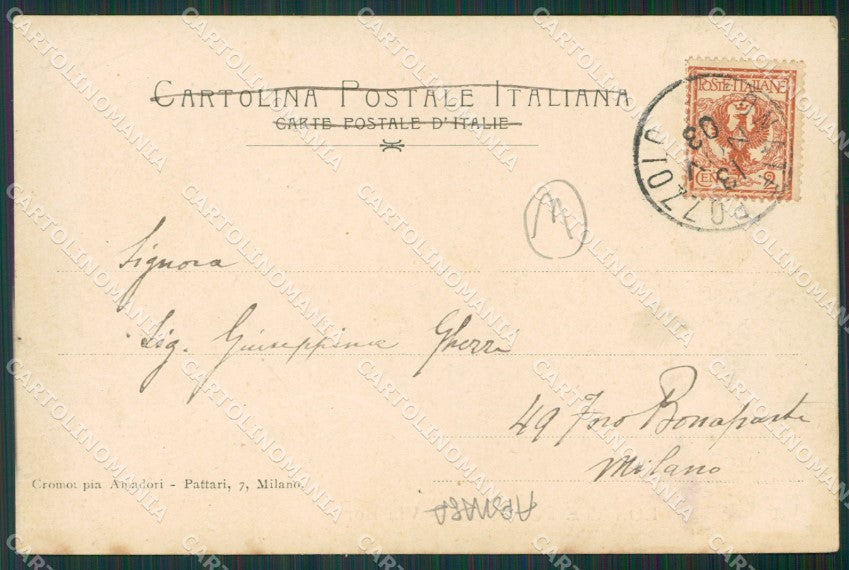 CARTOLINA POSTALE ITALIANA
CARTE POSTALE D'ITALIE
POSTE ITALIANE
CENT 2
POZZOLO
13
03
M
Signora
Sig. Giuseppina Gherri
49 Foro Bonaparte
Milano
Cromotipia Amadori - Pattari, 7, Milano.
CARTOLINOMANIA